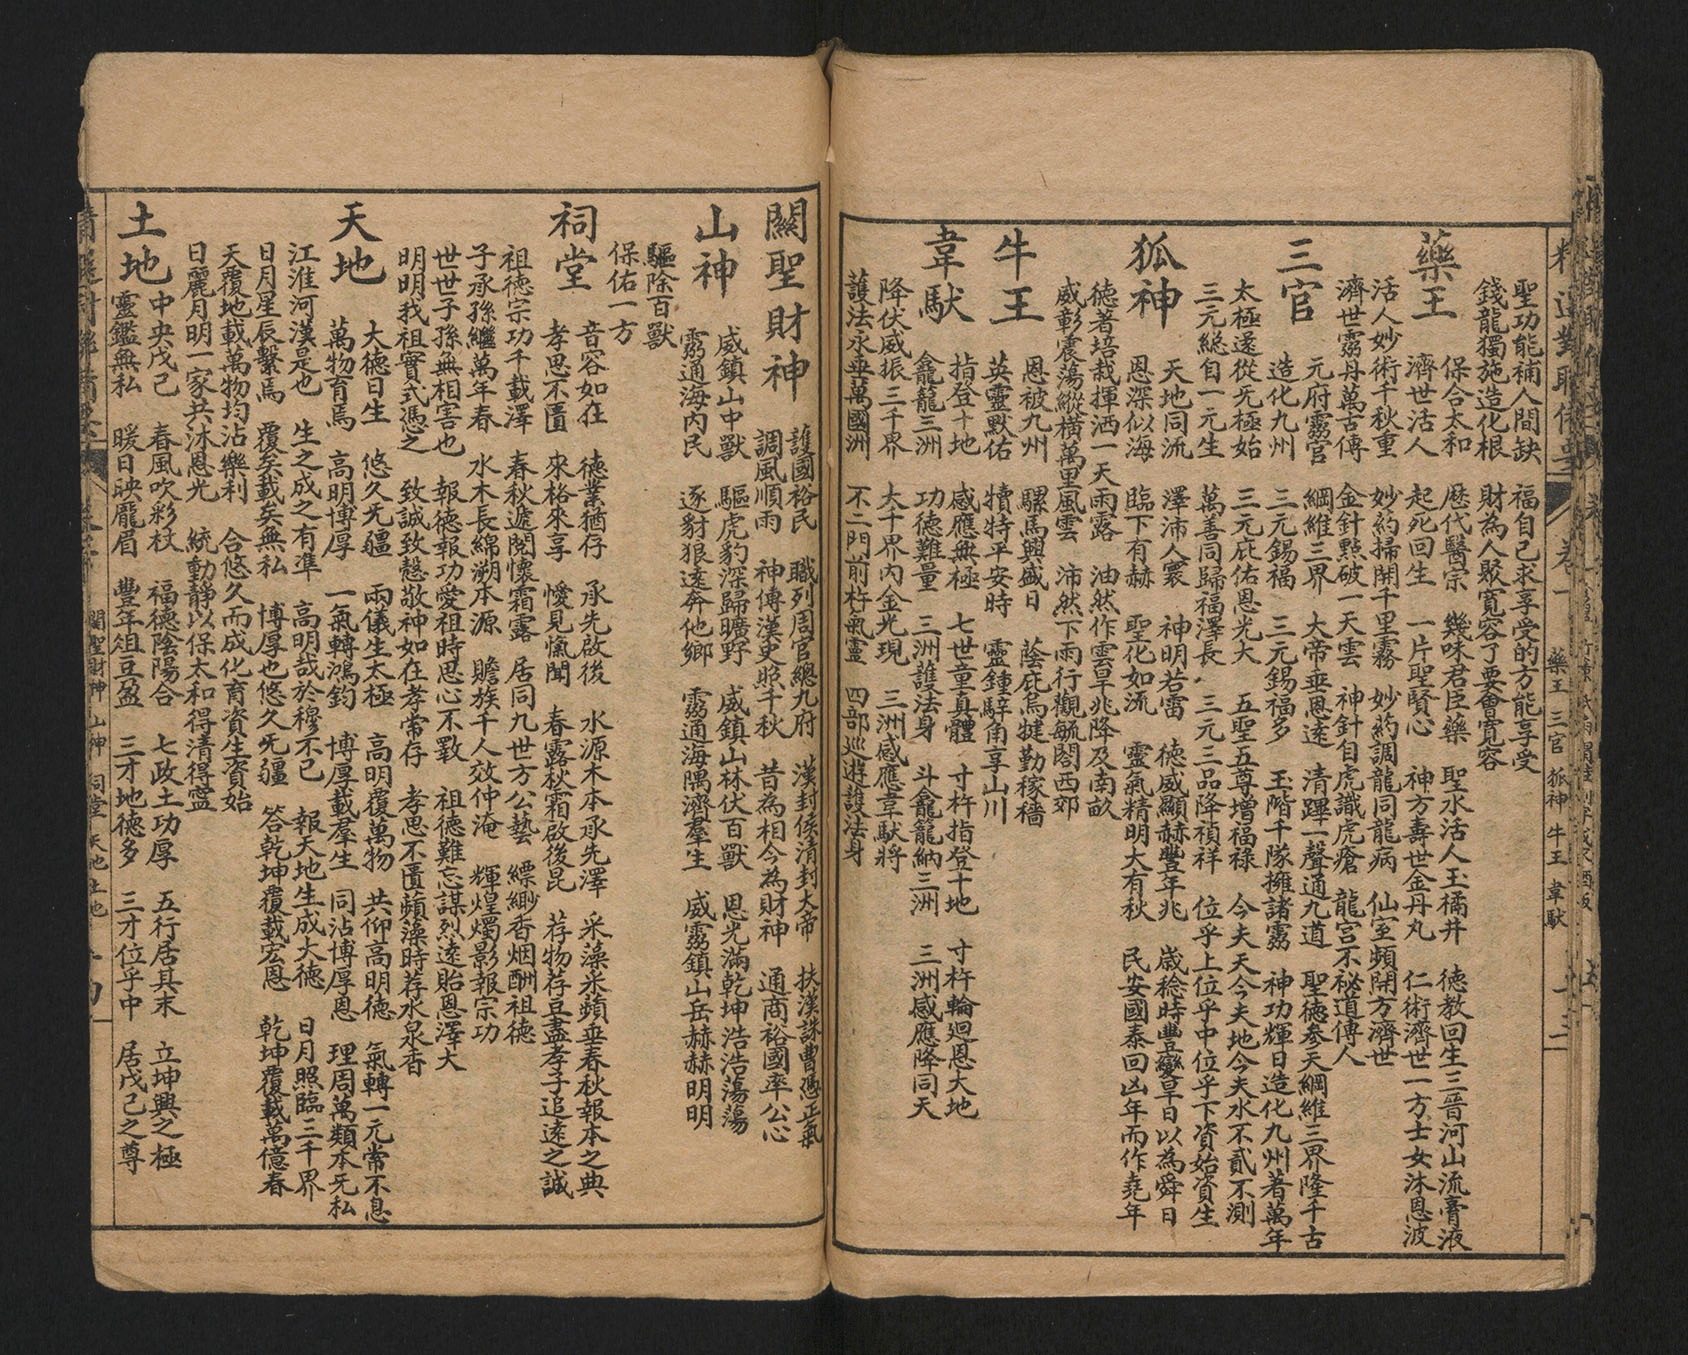 聖功能補人間缺　福自己求享受的方能享受
錢龍獨施造化根　財為人聚寬容了要會寬容
藥王
保合太和　歷代醫宗　幾味君臣藥　聖水活人玉橘井　德教回生三晉河山流膏液
濟世活人　起死回生　一片聖賢心　神方壽世金丹丸　仁術濟世一方士女沐恩波
活人妙術千秋重　妙药掃開千里霧　妙药調龍同龍病　仙室頻開方濟世
濟世靈丹萬古傳　金針點破一天雲　神針自虎識虎瘡　龍宮不祕道傳人
三官
元府靈官　綱維三界　大帝垂恩遠　清蹕一聲通九道　聖德参天綱維三界隆千古
造化九州　三元錫福　三元錫福多　玉階千隊擁諸靈　神功輝日造化九州著萬年
太極還從旡極始　三元庇佑恩光大　五聖五尊增福祿　今夫天今夫地今夫水不貳不測
三元總自一元生　萬善同歸福澤長　三元三品降禎祥　位乎上位乎中位乎下資始資生
狐神
天地同流　澤沛人寰　神明若雷　德威顯赫豐年兆　歲稔時豐變旱日以為舜日
恩深似海　臨下有赫　聖化如流　靈氣精明大有秋　民安國泰回凶年而作堯年
德著培栽揮洒一天雨露　油然作雲早兆降及南畝
威彰震蕩縱橫萬里風雲　沛然下雨行觀毓閟西郊
牛王
恩被九州　騾馬興盛日　蔭庇烏犍勤稼穡
英靈默佑　犢特平安時　靈鍾騂角享山川
韋馱
指登十地　感應無極　七世童真體　寸杵指登十地　寸杵輪廻恩大地
龕龍三洲　功德難量　三洲護法身　斗龕籠納三洲　三洲感應降同天
降伏威振三千界　大千界內金光現　三洲感應韋馱將
護法永垂萬國洲　不二門前杵氣靈　四部巡遊護法身
卷一
藥王　三官　狐神　牛王　韋馱
關聖財神
護國裕民　職列周官總九府　漢封侯清封大帝　扶漢誅曹憑正氣
調風順雨　神傳漢史照千秋　昔為相今為財神　通商裕國率公心
山神
威鎮山中獸　驅虎豹深歸曠野　威鎮山林伏百獸　恩光滿乾坤浩浩蕩蕩
靈通海內民　逐豺狼遠奔他鄉　靈通海隅濟羣生　威靈鎮山岳赫赫明明
驅除百獸
保佑一方
祠堂
音容如在　德業猶存　承先啟後　水源木本承先澤　采藻采蘋垂春秋報本之典
孝思不匱　來格來享　愾見愾聞　春露秋霜啟後昆　荐物荐豆盡孝子追遠之誠
祖德宗功千載澤　春秋遞閱懷霜露　居同九世方公藝　縹緲香烟酬祖德
子承孫繼萬年春　水木長綿溯本源　贍族千人效仲淹　輝煌燭影報宗功
世世子孫無相害也　報德報功愛祖時思心不斁　祖德難忘謀烈遠貽恩澤大
明明我祖實式憑之　致誠致慤敬神如在孝常存　孝思不匱蘋藻時荐水泉香
天地
大德曰生　悠久旡疆　兩儀生太極　高明覆萬物　共仰高明德　氣轉一元常不息
萬物育焉　高明博厚　一氣轉鴻鈞　博厚載羣生　同沾博厚恩　理周萬類本旡私
江淮河漢是也　生之成之有準　高明哉於穆不已　報天地生成大德　日月照臨三千界
日月星辰繫焉　覆矣載矣無私　博厚也悠久旡疆　答乾坤覆載宏恩　乾坤覆載萬億春
天覆地載萬物均沾樂利　合悠久而成化育資生資始
日麗月明一家共沐恩光　統動靜以保太和得清得寧
土地
中央戊己　春風吹彩杖　福德陰陽合　七政土功厚　五行居其末　立坤輿之極
靈鑑無私　暖日映龐眉　豐年俎豆盈　三才地德多　三才位乎中　居戊己之尊
關聖財神　山神　祠堂　天地　土地